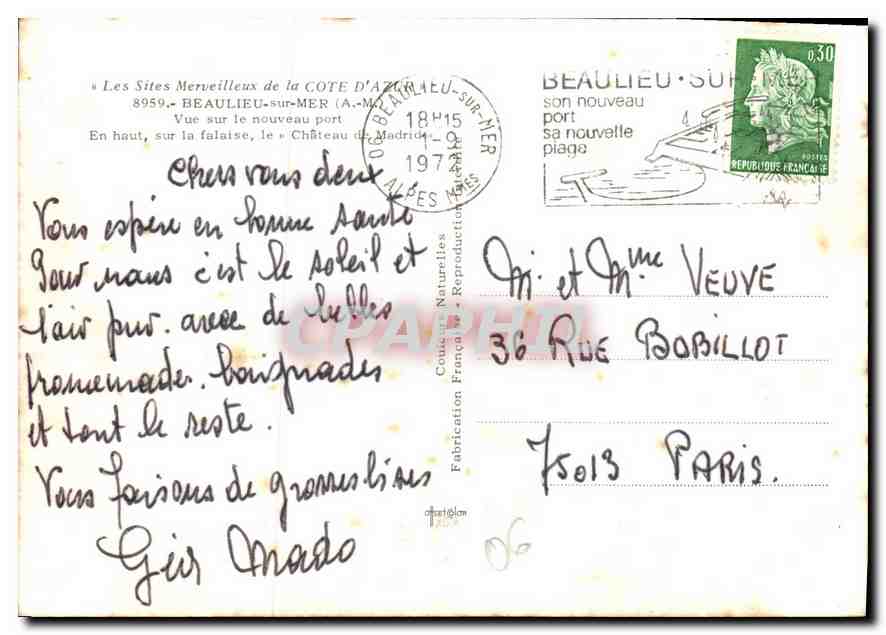 « Les Sites Merveilleux de la COTE D'AZUR »
8959.- BEAULIEU-sur-MER (A.-M.)
Vue sur le nouveau port
En haut, sur la falaise, le « Château de Madrid »
06 BEAULIEU-SUR-MER
18H15
1-9
1972
ALPES MMES
BEAULIEU • SUR MER
son nouveau
port
sa nouvelle
plage
0,30
POSTES
REPUBLIQUE FRANÇAISE
Chers vous deux
Vous espère en bonne santé
Pour nous c'est le soleil et
l'air pur. avec de belles
promenades. baignades
et tout le reste.
Vous faisons de grosses bises
Géo Mado
Couleurs Naturelles
Fabrication Française - Reproduction Interdite
M. et Mme VEUVE
36 RUE BOBILLOT
75013 PARIS.
CPAPHIL
06